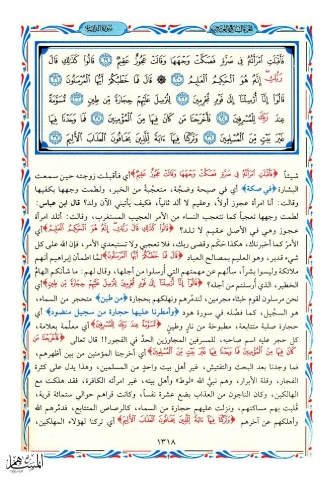 فَأَقْبَلَتِ امْرَأَتُهُ فِي صَرَّةٍ فَصَكَّتْ وَجْهَهَا وَقَالَتْ عَجُوزٌ عَقِيمٌ ﴿٢٩﴾ قَالُوا كَذَٰلِكِ قَالَ
رَبُّكِ إِنَّهُ هُوَ الْحَكِيمُ الْعَلِيمُ ﴿٣٠﴾ قَالَ فَمَا خَطْبُكُمْ أَيُّهَا الْمُرْسَلُونَ ﴿٣١﴾
قَالُوا إِنَّا أُرْسِلْنَا إِلَىٰ قَوْمٍ مُجْرِمِينَ ﴿٣٢﴾ لِنُرْسِلَ عَلَيْهِمْ حِجَارَةً مِنْ طِينٍ ﴿٣٣﴾ مُسَوَّمَةً
عِنْدَ رَبِّكَ لِلْمُسْرِفِينَ ﴿٣٤﴾ فَأَخْرَجْنَا مَنْ كَانَ فِيهَا مِنَ الْمُؤْمِنِينَ ﴿٣٥﴾ فَمَا وَجَدْنَا فِيهَا
غَيْرَ بَيْتٍ مِنَ الْمُسْلِمِينَ ﴿٣٦﴾ وَتَرَكْنَا فِيهَا آيَةً لِلَّذِينَ يَخَافُونَ الْعَذَابَ الْأَلِيمَ ﴿٣٧﴾
شيئاً ﴿فَأَقْبَلَتِ امْرَأَتُهُ فِي صَرَّةٍ فَصَكَّتْ وَجْهَهَا وَقَالَتْ عَجُوزٌ عَقِيمٌ﴾ أي فأقبلت زوجته حين سمعت
البشارة ﴿في صكة﴾ أي في صيحة وضجَّة، متعجِّبة من الخبر، ولطمت وجهها بكفيها
وقالت: أنا امرأة عجوز أولاً، وعقيم لا ألد ثانياً، فكيف يأتيني الآن ولد؟ قال ابن عباس:
لطمت وجهها تعجباً كما تتعجب النساء من الأمر العجيب المستغرب، وقالت: أتلد امرأة
عجوز وهي في الأصل عقيم لا تلد؟ ﴿قَالُوا كَذَٰلِكِ قَالَ رَبُّكِ إِنَّهُ هُوَ الْحَكِيمُ الْعَلِيمُ﴾ أي
الأمرُ كما أخبرناك، هكذا حكَم وقضى ربك، فلا تعجبي ولا تستبعدي الأمر، فإن الله على كل
شيء قدير، وهو العليم بمصالح العباد ﴿قَالَ فَمَا خَطْبُكُمْ أَيُّهَا الْمُرْسَلُونَ﴾ لمَّا اطمأن إبراهيم أنهم
ملائكة وليسوا بشراً، سألهم عن مهمتهم التي أُرسلوا من أجلها، وقال لهم: ما شأنكم الهامُّ
الخطير، الذي أُرسلتم من أجله؟ ﴿قَالُوا إِنَّا أُرْسِلْنَا إِلَىٰ قَوْمٍ مُجْرِمِينَ لِنُرْسِلَ عَلَيْهِمْ حِجَارَةً مِنْ طِينٍ﴾ أي
نحن مرسلون لقوم خبثاء مجرمين، لندمِّرهم ونهلكهم بحجارة ﴿من طين﴾ متحجر من السماء،
هو السجِّيل، كما فصَّله في سورة هود ﴿وأمطرنا عليها حجارة من سجيل منضود﴾ أي
حجارة صلبة متتابعة، مطبوخة من نارٍ وطين ﴿مُسَوَّمَةً عِنْدَ رَبِّكَ لِلْمُسْرِفِينَ﴾ أي معلَّمة بعلامة،
كل حجر عليه اسم صاحبه، للمسرفين المجاوزين الحدَّ في الفجور!! قال تعالى ﴿فَأَخْرَجْنَا مَنْ
كَانَ فِيهَا مِنَ الْمُؤْمِنِينَ فَمَا وَجَدْنَا فِيهَا غَيْرَ بَيْتٍ مِنَ الْمُسْلِمِينَ﴾ أي أخرجنا المؤمنين من بين أظهرهم،
فما وجدنا بعد البحث والتفتيش، غير أهل بيت واحدٍ من المسلمين، وهذا يدل على كثرة
الفجار، وقلة الأبرار، وهم نبيُّ الله «لوط» وأهل بيته، غير امرأته الكافرة، فقد هلكت مع
الهالكين، وكان الناجون من العذاب بضع عشرة نفساً، وكانت قراهم حوالي ستمائة قرية،
قُلبت بهم مساكنهم، ونزلت عليهم حجارة من السماء، كالرصاص المتتابع، فدمَّرهم الله
وأهلكهم عن آخرهم ﴿وَتَرَكْنَا فِيهَا آيَةً لِلَّذِينَ يَخَافُونَ الْعَذَابَ الْأَلِيمَ﴾ أي تركنا لهؤلاء المهلكين،
١٣١٨